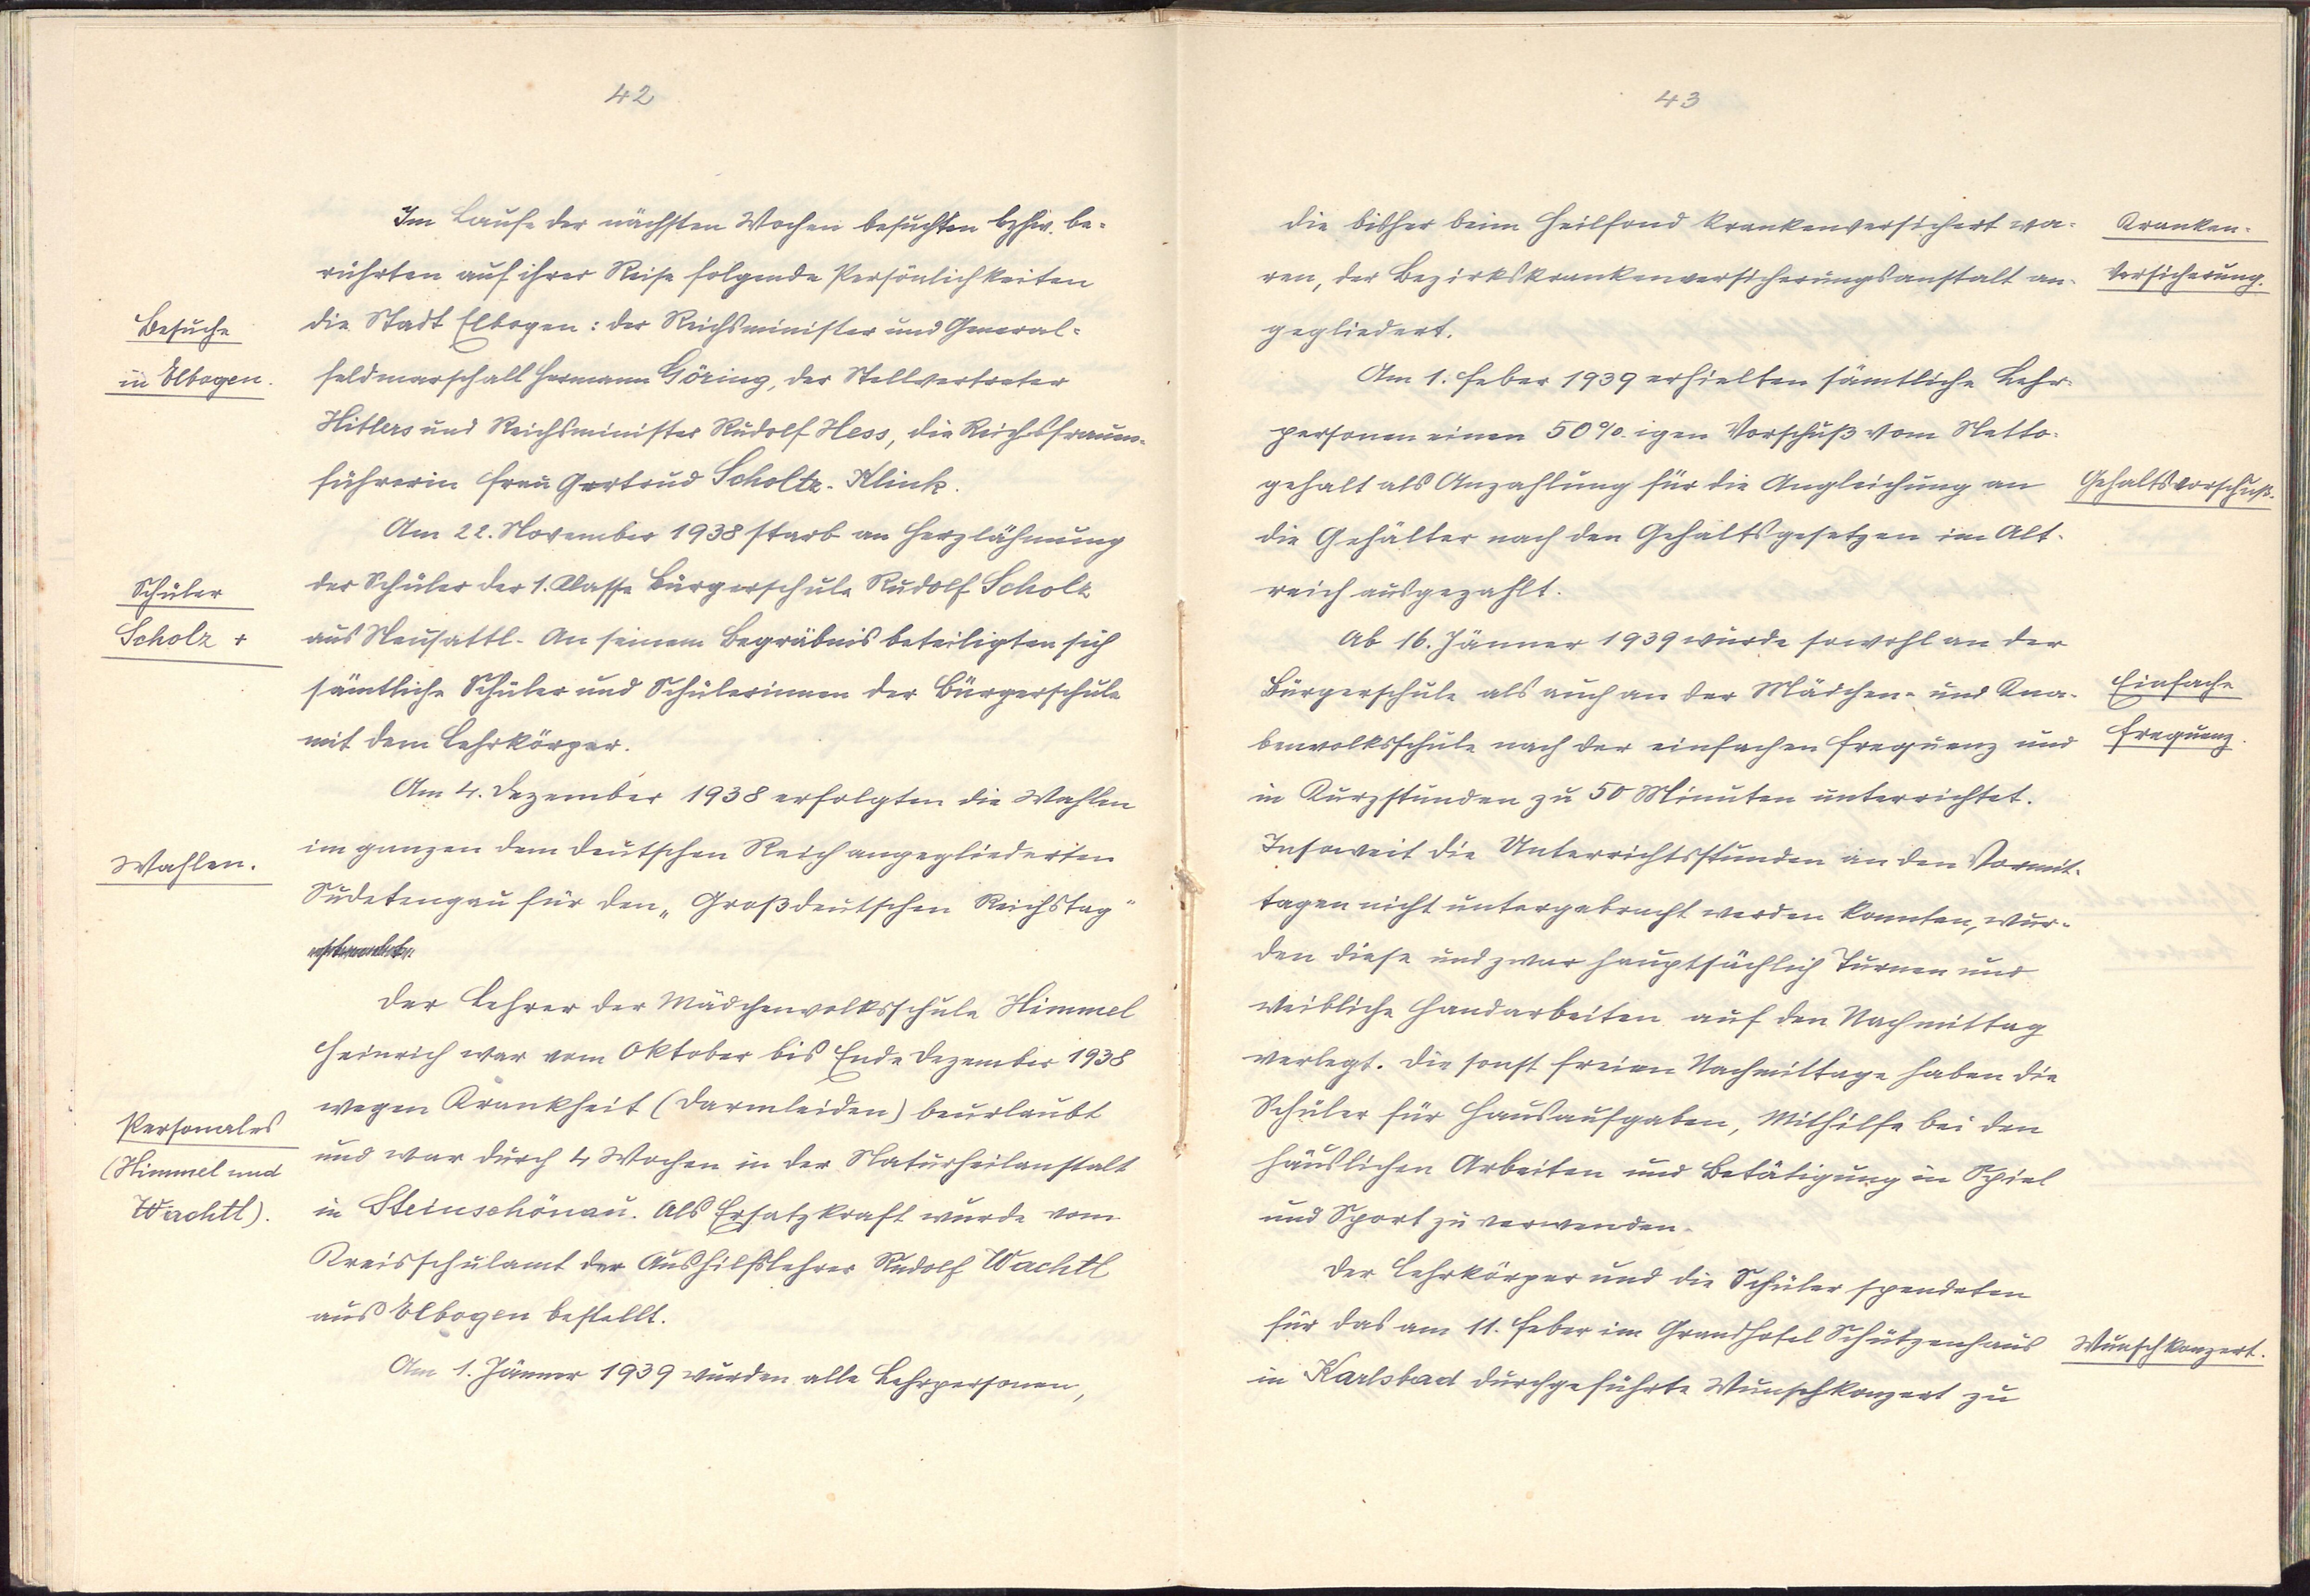 42
Im Laufe der nächsten Wochen besuchten bzhw. be-
rührten auf ihrer Reise folgende Persönlichkeiten
Besuche
die Stadt Elbogen: der Reichsminister und General-
in Elbogen.
feldmarschall Hermann Göring, der Stellvertreter
Hitlers und Reichsminister Rudolf Hess, die Reichsfrauen-
führerin Frau Gertrud Scholtz-Klink.
Am 22. November 1938 starb an Herzlähmung
Schüler
der Schüler der 1. Klasse Bürgerschule Rudolf Scholz
Scholz +
aus Neusattl. An seinem Begräbnis beteiligten sich
sämtliche Schüler und Schülerinnen der Bürgerschule
mit dem Lehrkörper.
Am 4. Dezember 1938 erfolgten die Wahlen
Wahlen.
im ganzen dem Deutschen Reich angegliederten
Sudetengau für den „Großdeutschen Reichstag"
Der Lehrer der Mädchenvolksschule Himmel
Heinrich war vom Oktober bis Ende Dezember 1938
Personales
wegen Krankheit (Darmleiden) beurlaubt
(Himmel und
und war durch 4 Wochen in der Naturheilanstalt
Wachtl).
in Steinschönau. Als Ersatzkraft wurde vom
Kreisschulamt der Aushilfslehrer Rudolf Wachtl
aus Elbogen bestellt.
Am 1. Jänner 1939 wurden alle Lehrpersonen,
43
die bisher beim Heilfond krankenversichert wa-
Kranken-
ren, der Bezirkskrankenversicherungsanstalt an-
versicherung.
gegliedert.
Am 1. Feber 1939 erhielten sämtliche Lehr-
personen einen 50%igen Vorschuß vom Netto-
gehalt als Anzahlung für die Angleichung an
Gehaltsvorschuß.
die Gehälter nach den Gehaltsgesetzen im Alt-
reich ausgezahlt.
Ab 16. Jänner 1939 wurde sowohl an der
Bürgerschule als auch an der Mädchen- und Kna-
Einfache
benvolksschule nach der einfachen Frequenz und
Frequenz.
in Kurzstunden zu 50 Minuten unterrichtet.
Insoweit die Unterrichtsstunden an den Vormit-
tagen nicht untergebracht werden konnten, wur-
den diese und zwar hauptsächlich Turnen und
weibliche Handarbeiten auf den Nachmittag
verlegt. Die sonst freien Nachmittage haben die
Schüler für Hausaufgaben, Mithilfe bei den
häuslichen Arbeiten und Betätigung in Spiel
und Sport zu verwenden.
Der Lehrkörper und die Schüler spendeten
für das am 11. Feber im Grandhotel Schützenhaus
Wunschkonzert.
in Karlsbad durchgeführte Wunschkonzert zu